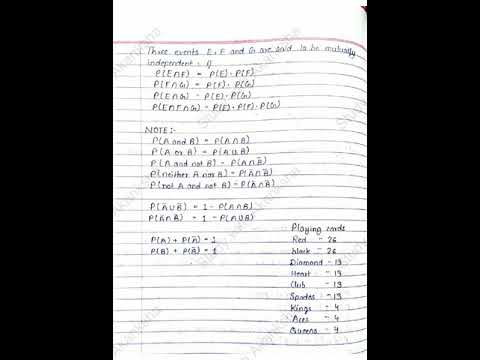 Three events E, F and G are said to be mutually
independent : if
P(E∩F) = P(E) · P(F)
P(F∩G) = P(F) · P(G)
P(E∩G) = P(E) · P(G)
P(E∩F∩G) = P(E) · P(F) · P(G)
NOTE:-
P(A and B) = P(A∩B)
P(A or B) = P(A∪B)
P(A and not B) = P(A∩B̅)
P(neither A nor B) = P(A̅∩B̅)
P(not A and not B) = P(A̅∩B̅)
P(A̅∪B̅) = 1 - P(A∩B)
P(A̅∩B̅) = 1 - P(A∪B)
P(A) + P(A̅) = 1
P(B) + P(B̅) = 1
Playing cards
Red - 26
black - 26
Diamond - 13
Heart - 13
Club - 13
Spades - 13
Kings - 4
Aces - 4
Queens - 4